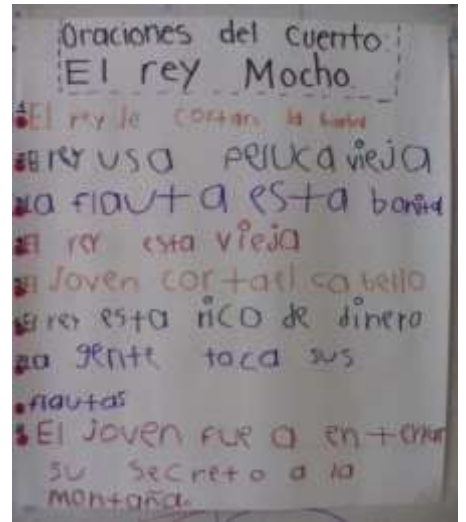 Oraciones del Cuento:
El rey Mocho
El rey le cortan la
El rey usa peluca vieja
La flauta esta bonita
El rey esta vieja
El Joven corta el cabello
El rey esta rico de dinero
La gente toca sus
flautas
El Joven fue a enterrar
su secreto a la
montaña.